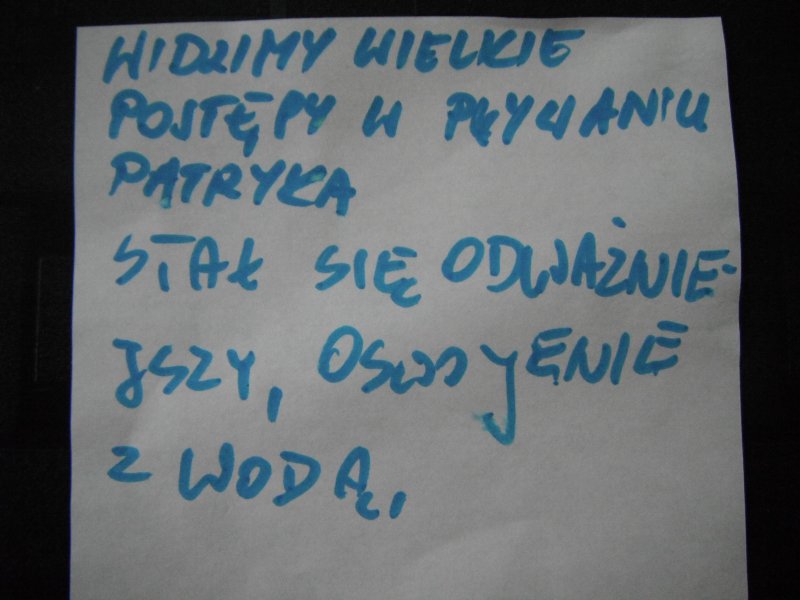 WIDZIMY WIELKIE
POSTĘPY W PŁYWANIU
PATRYKA
STAŁ SIĘ ODWAŻNIE-
JSZY, OSWOJENIE
Z WODĄ,